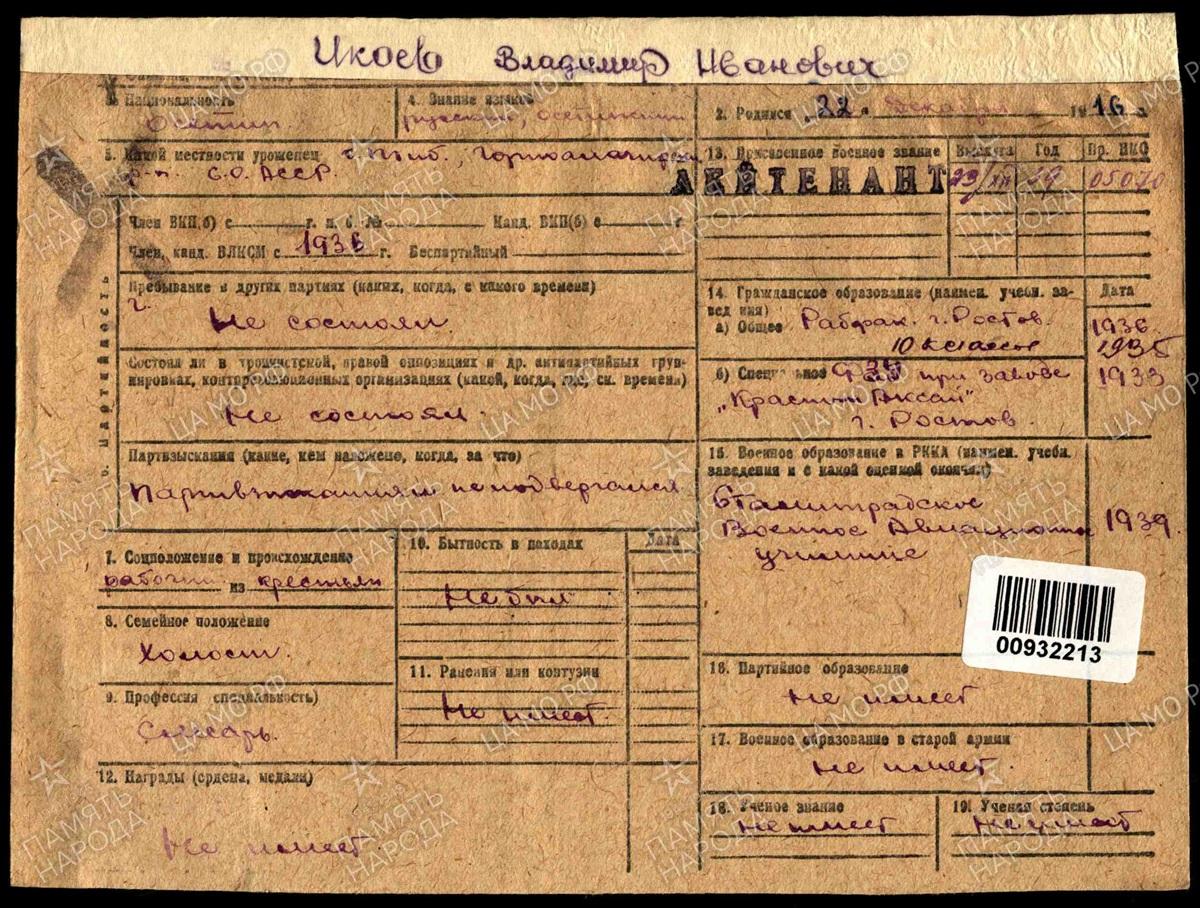 Икоев Владимир Иванович
3. Национальность
осетин
4. Знание языков
русский, осетинский
2. Родился „22“ декабря 1916 г.
5. Какой местности уроженец
р-н. С.О. АССР.
13. Присвоенное военное звание
Год
Пр. НКО
ЛЕЙТЕНАНТ
23/XII 39 05070
6. Партийность
Член ВКП(б) с г. п. б. № Канд. ВКП(б) с г
Член, канд. ВЛКСМ с 1936 г. Беспартийный
Пребывание в других партиях (каких, когда, с какого времени)
Не состоял.
Состоял ли в троцкистской, правой оппозициях и др. антипартийных груп-
пировках, контрреволюционных организациях (какой, когда, где, ск. времени)
Не состоял.
Партвзыскания (какие, кем наложено, когда, за что)
Партвзысканиям не подвергался
14. Гражданское образование (наимен. учебн. за-
вед ния)
Дата
а) Общее Рабфак. г. Ростов. 1936.
10 классов 1935
б) Специальное ФЗУ при заводе 1933
„Красный Аксай“
г. Ростов.
15. Военное образование в РККА (наимен. учебн.
заведения и с какой оценкой окончил)
Сталинградское
Военное Авиационное 1939.
училище
7. Соцположение и происхождение
рабочий из крестьян
8. Семейное положение
Холост.
9. Профессия специальность)
Слесарь.
10. Бытность в походах
Дата
Не был
11. Ранения или контузии
Не имеет.
12. Награды (ордена, медали)
Не имеет.
00932213
16. Партийное образование
Не имеет
17. Военное образование в старой армии
Не имеет.
18. Ученое звание
Не имеет
19. Ученая степень
Не имеет
ПАМЯТЬ НАРОДА
ЦАМО.РФ